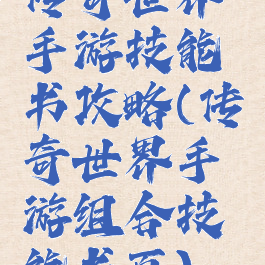 传奇世界
手游技能
书攻略(传
奇世界手
游组合技
能书页)